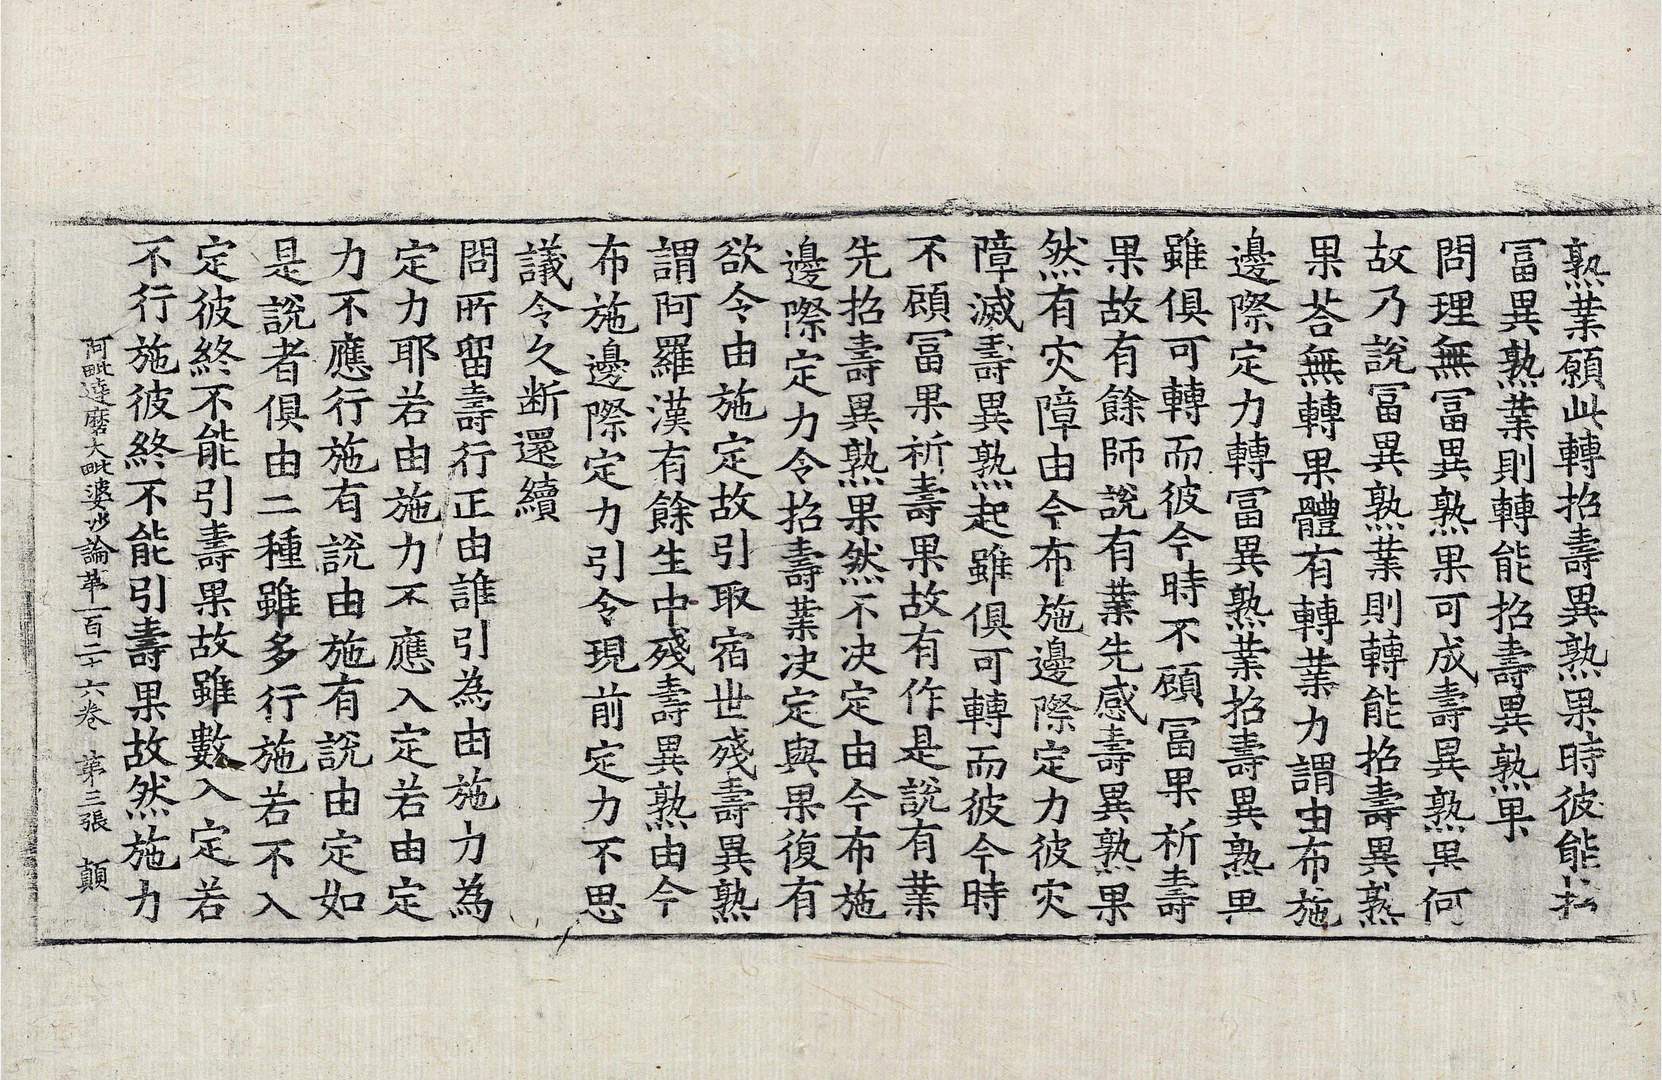 熟業願此轉招壽異熟果時彼能招
冨異熟業則轉能招壽異熟果
問理無冨異熟果可成壽異熟果何
故乃說冨異熟業則轉能招壽異熟
果荅無轉果體有轉業力謂由布施
邊際定力轉冨異熟業招壽異熟果
雖俱可轉而彼今時不顧冨果祈壽
果故有餘師說有業先感壽異熟果
然有灾障由今布施邊際定力彼灾
障滅壽異熟起雖俱可轉而彼今時
不顧冨果祈壽果故有作是說有業
先招壽異熟果然不决定由今布施
邊際定力令招壽業决定與果復有
欲令由施定故引取宿世殘壽異熟
謂阿羅漢有餘生中殘壽異熟由今
布施邊際定力引令現前定力不思
議令久断還續
問所留壽行正由誰引為由施力為
定力耶若由施力不應入定若由定
力不應行施有說由施有說由定如
是說者俱由二種雖多行施若不入
定彼終不能引壽果故雖數入定若
不行施彼終不能引壽果故然施力
阿毗達磨大毗婆沙論苐一百二十六卷 第三張 顛